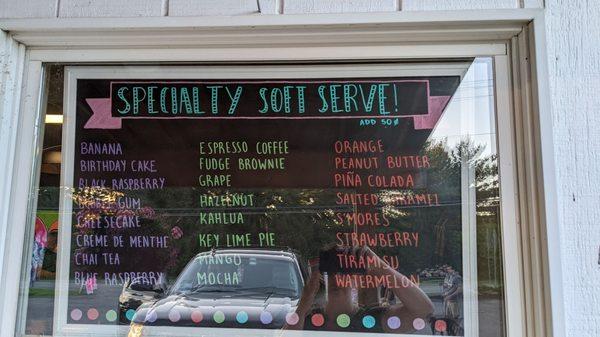 SPECIALTY SOFT SERVE!
ADD 50¢
BANANA
BIRTHDAY CAKE
BLACK RASPBERRY
GUM
CHEESECAKE
CREME DE MENTHE
CHAI TEA
BLUE RASPBERRY
ESPRESSO COFFEE
FUDGE BROWNIE
GRAPE
HAZELNUT
KAHLUA
KEY LIME PIE
MANGO
MOCHA
ORANGE
PEANUT BUTTER
PIÑA COLADA
SALTED CARAMEL
S'MORES
STRAWBERRY
TIRAMISU
WATERMELON